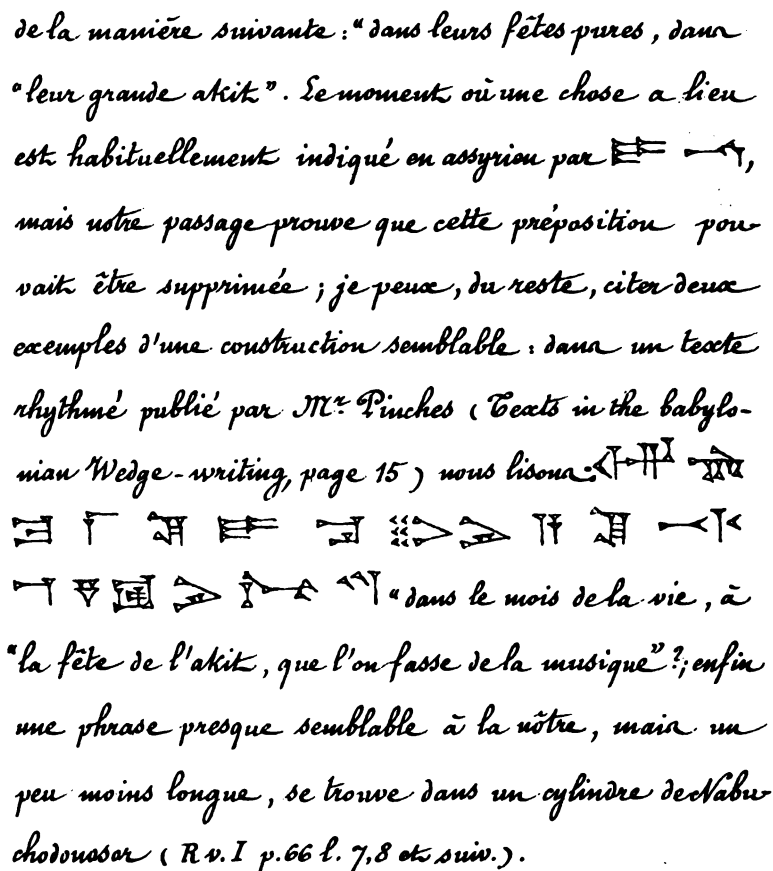 de la manière suivante : "dans leurs fêtes pures, dans
"leur grande akit". Le moment où une chose a lieu
est habituellement indiqué en assyrien par
mais notre passage prouve que cette préposition pou-
vait être supprimée ; je peux, du reste, citer deux
exemples d'une construction semblable : dans un texte
rhythmé publié par Mr. Pinches (Texts in the babylo-
nian Wedge-writing, page 15) nous lisons :
"dans le mois de la vie, à
"la fête de l'akit, que l'on fasse de la musique" ?; enfin
une phrase presque semblable à la nôtre, mais un
peu moins longue, se trouve dans un cylindre de Nabu-
chodonosor ( R v. I p. 66 l. 7,8 et suiv.).